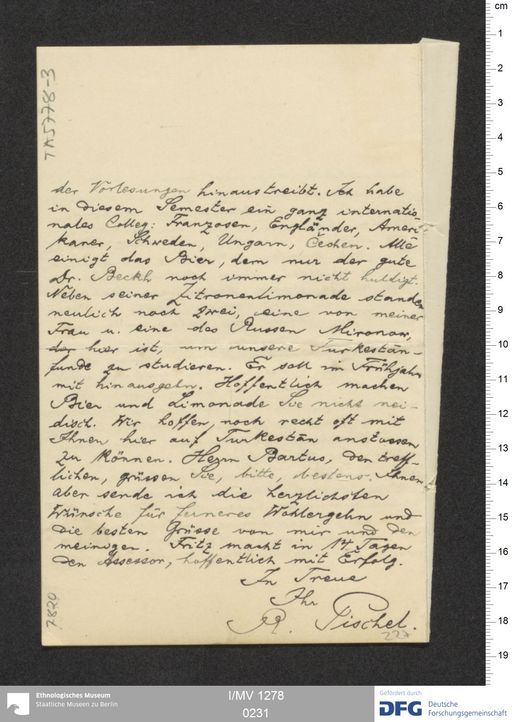 TA 5778-3
der Vorlesungen hinaustreibt. Ich habe
in diesem Semester ein ganz internatio-
nales Colleg: Franzosen, Engländer, Ameri-
kaner, Schweden, Ungarn, Cechen. Alle
einigt das Bier, dem nur der gute
Dr. Beckh noch immer nicht huldigt.
Neben seiner Zitronenlimonade standen
neulich noch zwei, eine von meiner
Frau u. eine des Russen Mironow,
der hier ist, um unsere Turkestân-
funde zu studieren. Er soll im Frühjahr
mit hinausgehn. Hoffentlich machen
Bier und Limonade Sie nicht nei-
disch. Wir hoffen, noch recht oft mit
Ihnen hier auf Turkestân anstossen
zu können. Herrn Bartus, den treff-
lichen, grüssen Sie, bitte, bestens. Ihnen
aber sende ich die herzlichsten
Wünsche für ferneres Wohlergehn und
die besten Grüsse von mir und den
meinigen. Fritz macht in 14 Tagen
den Assessor, hoffentlich mit Erfolg.
In Treue
Ihr
R. Pischel.
227
cm
1
2
3
4
5
6
7
8
9
10
11
12
13
14
15
16
17
18
19
Ethnologisches Museum
Staatliche Museen zu Berlin
I/MV 1278
0231
Gefördert durch
DFG
Deutsche
Forschungsgemeinschaft